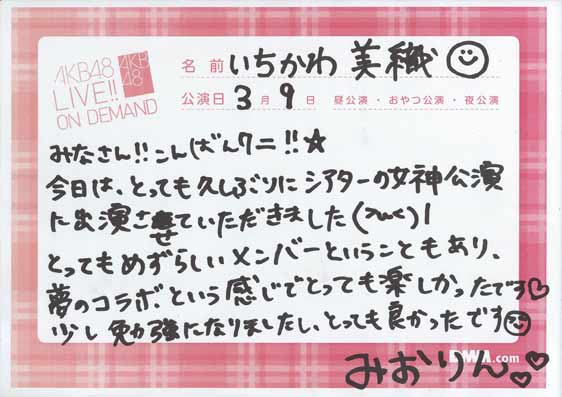 AKB48
LIVE!!
ON DEMAND
AKB
48
名 前 いちかわ 美織
公演日 3 月 9 日 昼公演・おやつ公演・夜公演
みなさん!!こんばんワニ!!★
今日は、とっても久しぶりにシアターの女神公演
に出演させていただきました
とってもめずらしいメンバーということもあり、
夢のコラボという感じでとっても楽しかったです♡
少し勉強になりましたし、とっても良かったです
みおりん♡♡
.com